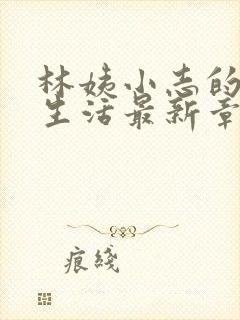 林姨小志的
生活最新章
痕綫